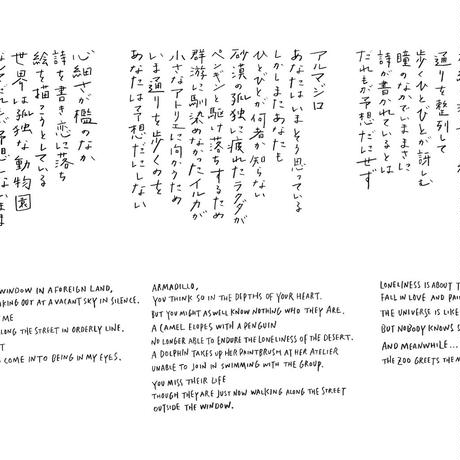 通りを整列して
歩くひとびとが訝しむ
瞳のなかでいままさに
詩が書かれているとは
だれもが予想だにせず
アルマジロ
あなたはいまそう思っている
しかしまたあなたも
ひとびとが何者か知らない
砂漠の孤独に疲れたラクダが
ペンギンと駆け落ちするため
群游に馴染めなかったイルカが
小さなアトリエに向かうため
いま通りを歩くのを
あなたは予想だにしない
心細さが檻のなか
詩を書き恋に落ち
絵を描こうとしている
世界は孤独な動物園
WINDOW IN A FOREIGN LAND,
KING OUT AT A VACANT SKY IN SILENCE.
ME
LONG THE STREET IN ORDERLY LINE.
T
COME INTO BEING IN MY EYES.
ARMADILLO,
YOU THINK SO IN THE DEPTHS OF YOUR HEART.
BUT YOU MIGHT AS WELL KNOW NOTHING WHO THEY ARE.
A CAMEL ELOPES WITH A PENGUIN
NO LONGER ABLE TO ENDURE THE LONELINESS OF THE DESERT.
A DOLPHIN TAKES UP HER PAINTBRUSH AT HER ATELIER
UNABLE TO JOIN IN SWIMMING WITH THE GROUP.
YOU MISS THEIR LIFE
THOUGH THEY ARE JUST NOW WALKING ALONG THE STREET
OUTSIDE THE WINDOW.
LONELINESS IS ABOUT T
FALL IN LOVE AND PAI
THE UNIVERSE IS LIKE
BUT NOBODY KNOWS S
AND MEANWHILE...
THE ZOO GREETS THEN